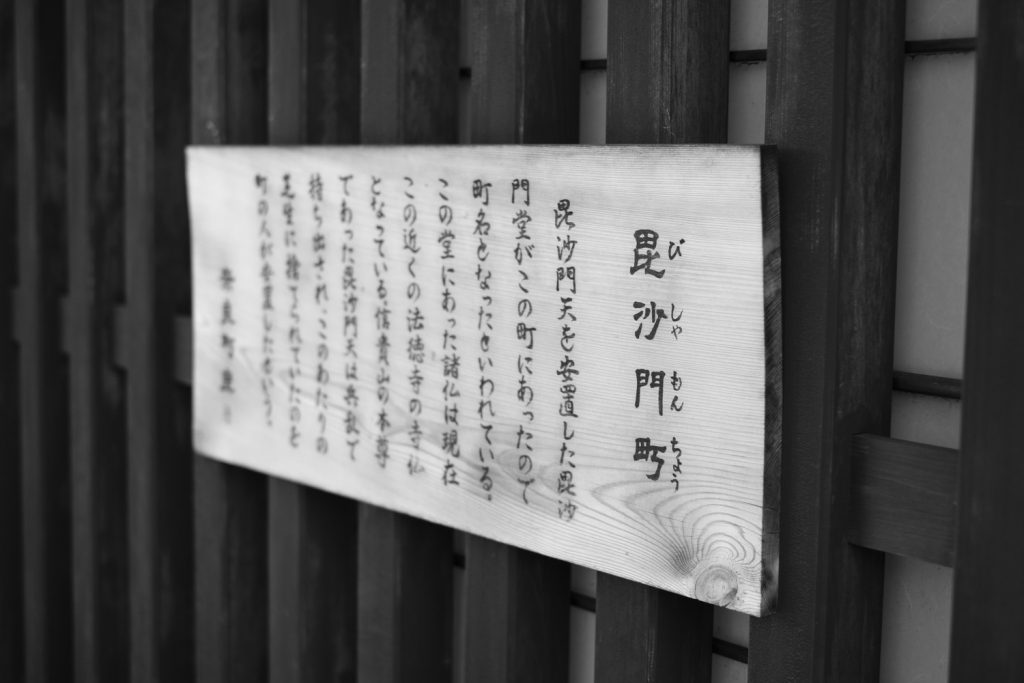 毘沙門町
びしゃもんちょう
毘沙門天を安置した毘沙
門堂がこの町にあったので
町名となったといわれている。
この堂にあった諸仏は現在
この近くの法徳寺の寺仏
となっている。信貴山の本尊
であった毘沙門天は兵乱で
持ち出され、このあたりの
芝生に捨てられていたのを
町の人が安置したという。
奈良町